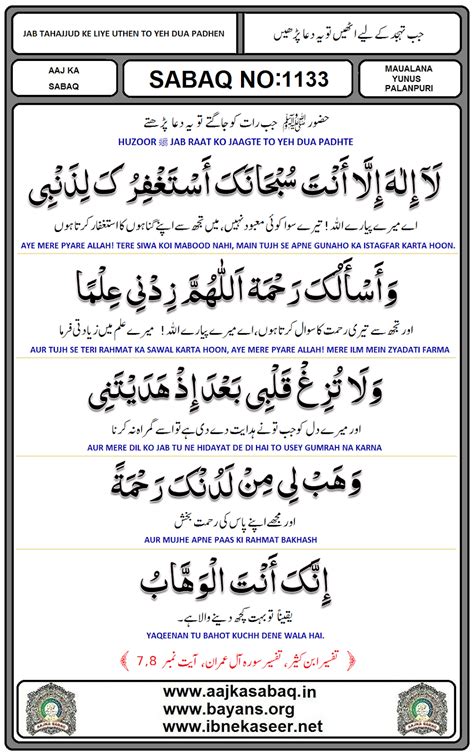 JAB TAHAJJUD KE LIYE UTHEN TO YEH DUA PADHEN
جب تہجد کے لیے اٹھیں تو یہ دعا پڑھیں
AAJ KA
SABAQ
SABAQ NO:1133
MAULANA
YUNUS
PALANPURI
حضور ﷺ جب رات کو جاگتے تو یہ دعا پڑھتے
HUZOOR ﷺ JAB RAAT KO JAAGTE TO YEH DUA PADHTE
لَآ إِلٰهَ إِلَّا أَنْتَ سُبْحَانَکَ أَسْتَغْفِرُکَ لِذَنْبِی
اے میرے پیارے اللہ! تیرے سوا کوئی معبود نہیں، میں تجھ سے اپنے گناہوں کا استغفار کرتا ہوں
AYE MERE PYARE ALLAH! TERE SIWA KOI MABOOD NAHI, MAIN TUJH SE APNE GUNAHO KA ISTAGFAR KARTA HOON.
وَأَسْأَلُکَ رَحْمَةً اَللّٰهُمَّ زِدْنِی عِلْمًا
اور تجھ سے تیری رحمت کا سوال کرتا ہوں، اے میرے پیارے اللہ! میرے علم میں زیادتی فرما
AUR TUJH SE TERI RAHMAT KA SAWAL KARTA HOON, AYE MERE PYARE ALLAH! MERE ILM MEIN ZYADATI FARMA
وَلَا تُزِغْ قَلْبِی بَعْدَ إِذْ هَدَیْتَنِی
اور میرے دل کو جب تو نے ہدایت دے دی ہے تو اسے گمراہ نہ کرنا
AUR MERE DIL KO JAB TU NE HIDAYAT DE DI HAI TO USEY GUMRAH NA KARNA
وَهَبْ لِی مِنْ لَدُنْکَ رَحْمَةً
اور مجھے اپنے پاس کی رحمت بخش
AUR MUJHE APNE PAAS KI RAHMAT BAKHASH
إِنَّکَ أَنْتَ الْوَهَّابُ
یقیناً تو بہت کچھ دینے والا ہے۔
YAQEENAN TU BAHOT KUCHH DENE WALA HAI.
﴿ تفسیر ابن کثیر، تفسیر سورہ آل عمران، آیت نمبر 7,8 ﴾
www.aajkasabaq.in
www.bayans.org
www.ibnekaseer.net
AAJKA SABAQ
AAJKA SABAQ